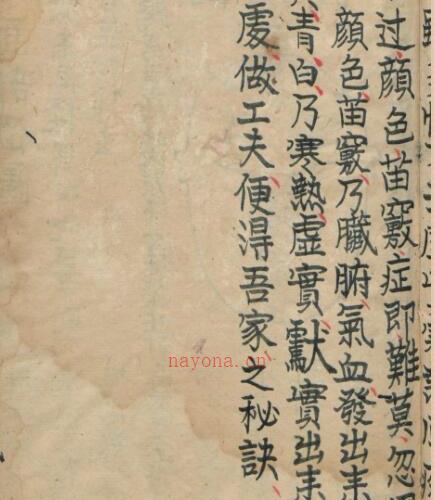 过顔色苗竅症即難莫忽
顔色苗竅乃臟腑氣血發出
青白乃寒熱虛實獻實出
處做工夫便淂吾家之秘訣
nayona.cn